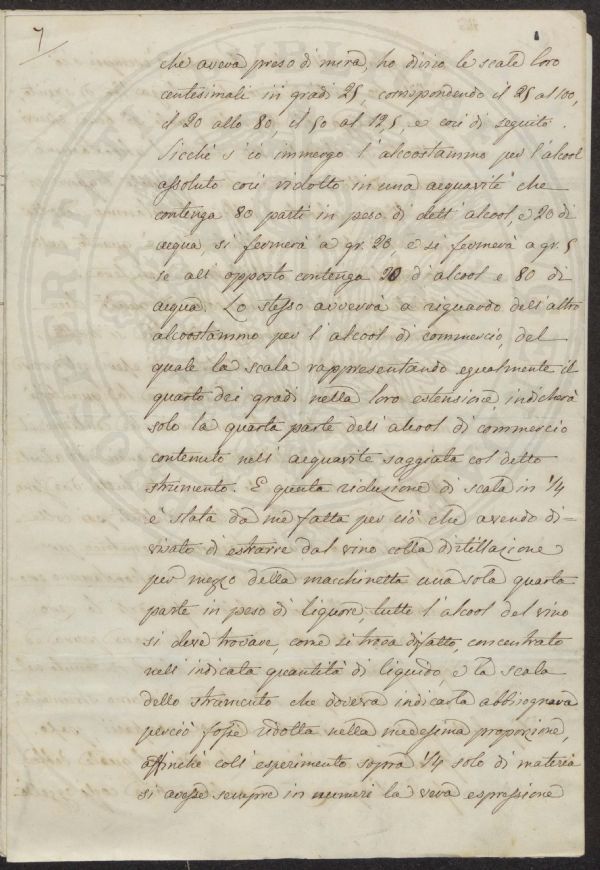 7
che aveva preso di mira, ho diviso le scale loro
centesimali in gradi 25, corrispondendo il 25 al 100,
il 20 allo 80, il 50 al 12,5, e così di seguito.
Sicchè s'io immergo l'alcoostammo per l'alcool
assoluto così ridotto in una acquavite che
contenga 80 parti in peso di dett'alcool, e 20 di
acqua, si fermerà a gr. 20, e si fermerà a gr. 5
se all'opposto contenga 20 d'alcool e 80 di
acqua. Lo stesso avverrà a riguardo dell'altro
alcoostammo per l'alcool di commercio, del
quale la scala rappresentando egualmente il
quarto dei gradi nella loro estensione, indicherà
solo la quarta parte dell'alcool di commercio
contenuto nell'acquavite saggiata col detto
strumento. E questa riduzione di scala in 1/4
è stata da me fatta per ciò che avendo di=
visato di estrarre dal vino colla distillazione
per mezzo della macchinetta una sola quarta
parte in peso di liquore, tutto l'alcool del vino
si deve trovare, come si trova difatto, concentrato
nell'indicata quantità di liquido, e la scala
dello strumento che doveva indicarla abbisognava
perciò fosse ridotta nella medesima proporzione,
affinchè coll'esperimento sopra 1/4 solo di materia
si avesse sempre in numeri la vera espressione